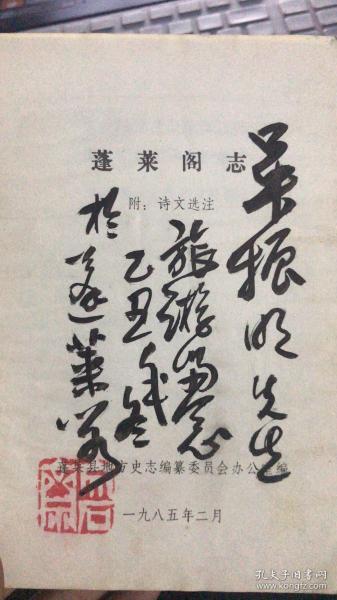 蓬莱阁志
附：诗文选注
旅游留念
乙丑年冬
於蓬莱阁
振明先生
蓬莱县地方史志编纂委员会办公室编
一九八五年二月
孔夫子旧书网